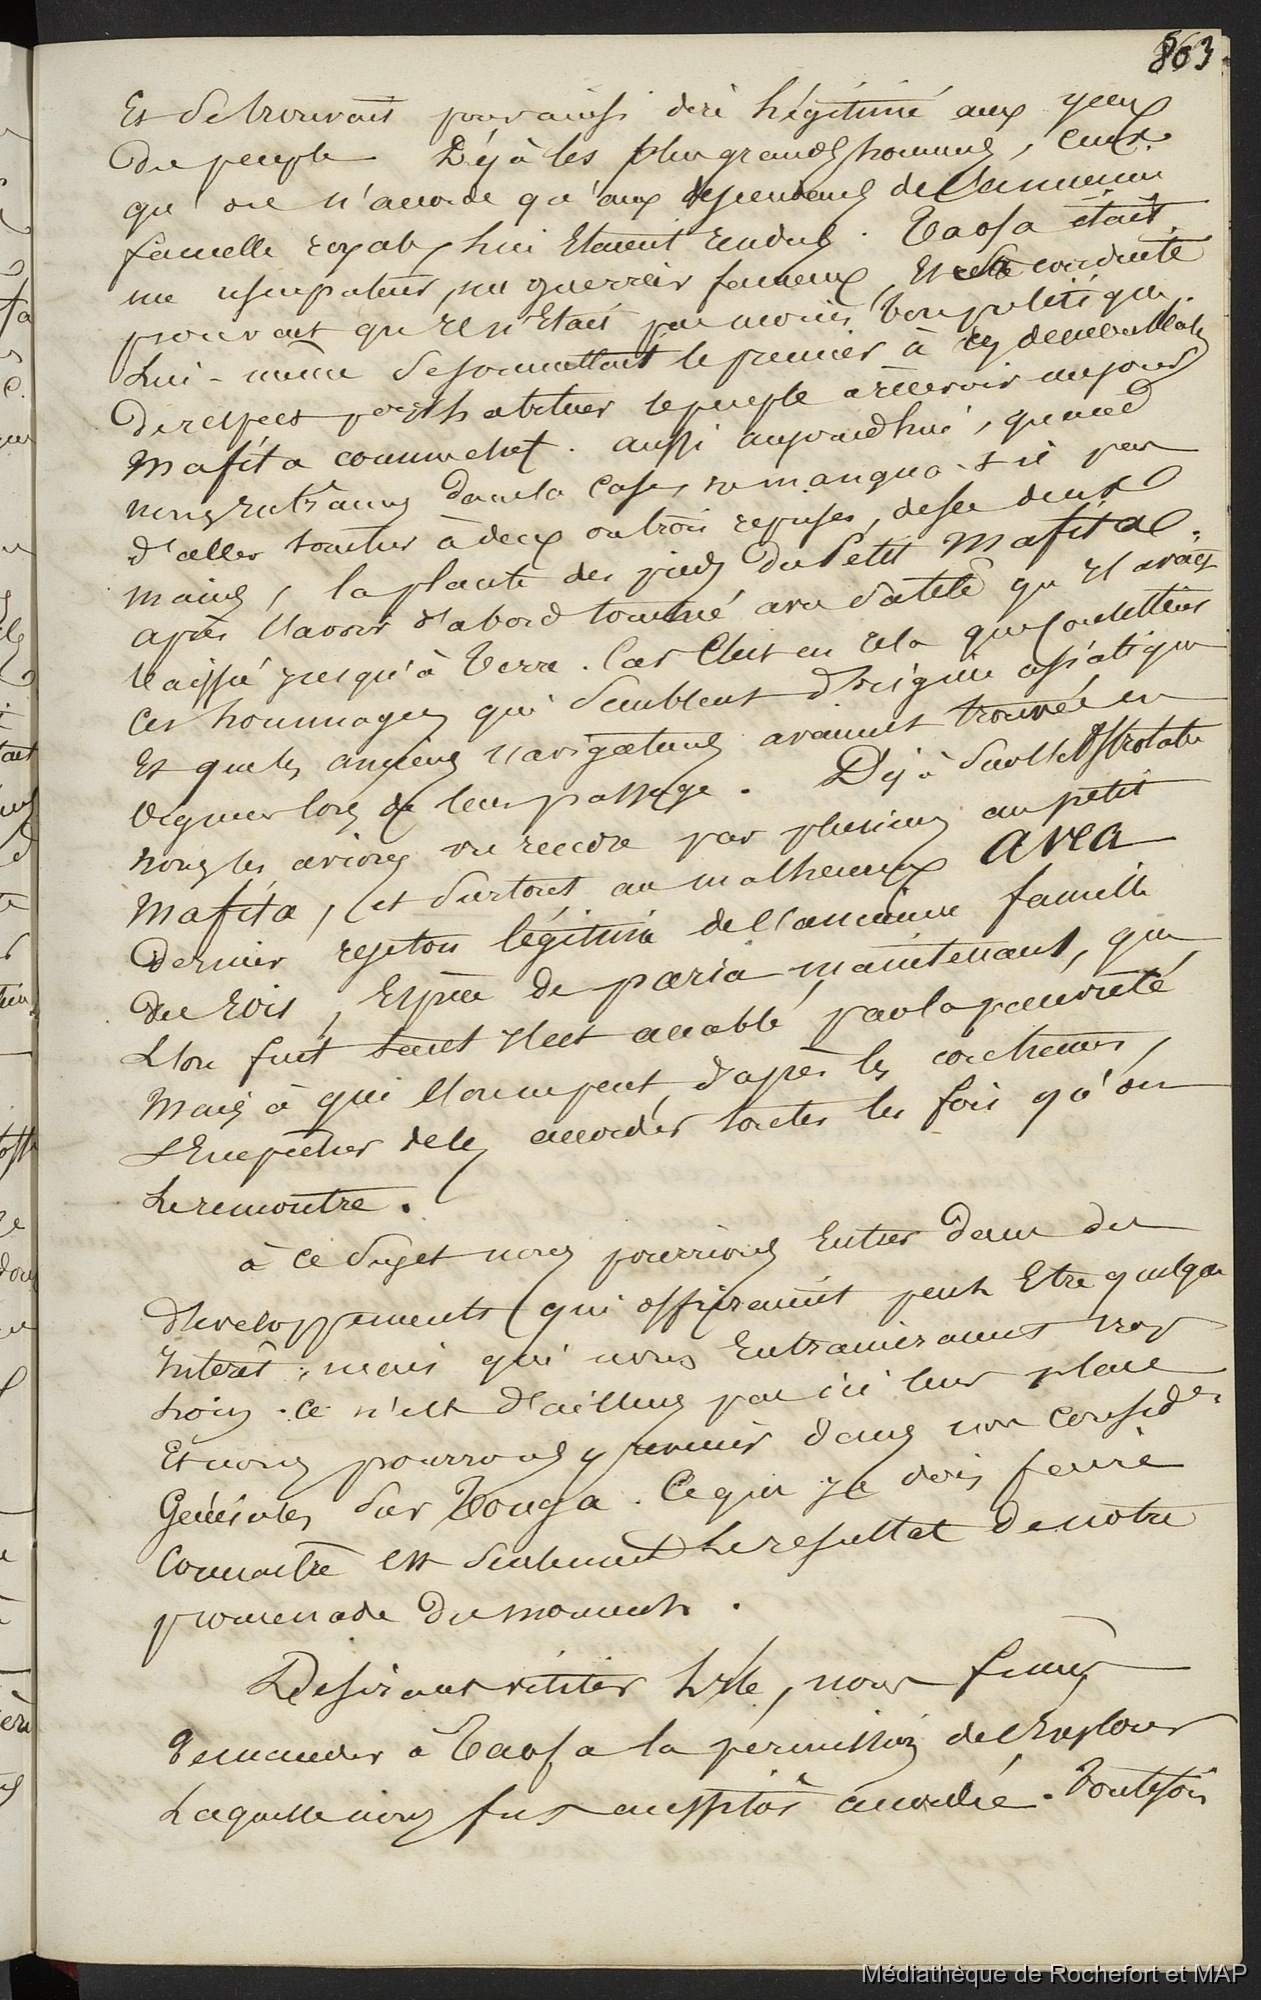 863
Et se trouvant pour ainsi dire légitimé aux yeux
du peuple Déjà les plus grands hommes, ceux
qu'on n'accorde qu'aux descendens de l'ancienne
famille royale, lui étaient rendus. Taofa était
un usurpateur, un guerrier fameux, et cette conduite
prouvait qu'il n'était pas moins bon politique.
Lui-même se soumettant le premier à ces
de respect pour habituer le peuple à recevoir un jour
Mafita comme chef. aussi aujourd'hui, quand
nous entrâmes dans la case, ne manqua-t-il pas
d'aller toucher à deux ou trois reprises, de ses deux
mains, la plante des pieds du Petit Mafita
après l'avoir d'abord touché avec sa tête qu'il avait
baissée jusqu'à terre. Car c'est en cela que consistent
ces hommages qui semblent d'origine asiatique
Et que les anciens navigateurs avaient trouvés en
vigueur lors de leur passage. Déjà sur l'Astrolabe
nous les avions vu rendre par plusieurs au petit
Mafita, et surtout au malheureux Avea
Dernier rejeton légitime de l'ancienne famille
des rois, Espèce de paria maintenant, que
L'on fuit tant il est accablé par la pauvreté
Mais à qui l'on ne peut, d'après les coutumes,
s'empêcher de les accorder toutes les fois qu'on
Le rencontre.
à ce sujet nous pourrions Entrer dans des
développements qui offriraient peut être quelque
intérêt; mais qui nous Entraineraient trop
Loin. ce n'est d'ailleurs pas ici leur place
Et nous pourrons y revenir dans nos consid.
Générales sur Tonga. Ce que je dois faire
Connaitre est seulement Le résultat de notre
promenade du moment.
Désirant visiter L'île, nous fimes
demander à Taofa la permission de l'explorer
Laquelle nous fut aussitôt accordée. Toutefois
Médiathèque de Rochefort et MAP